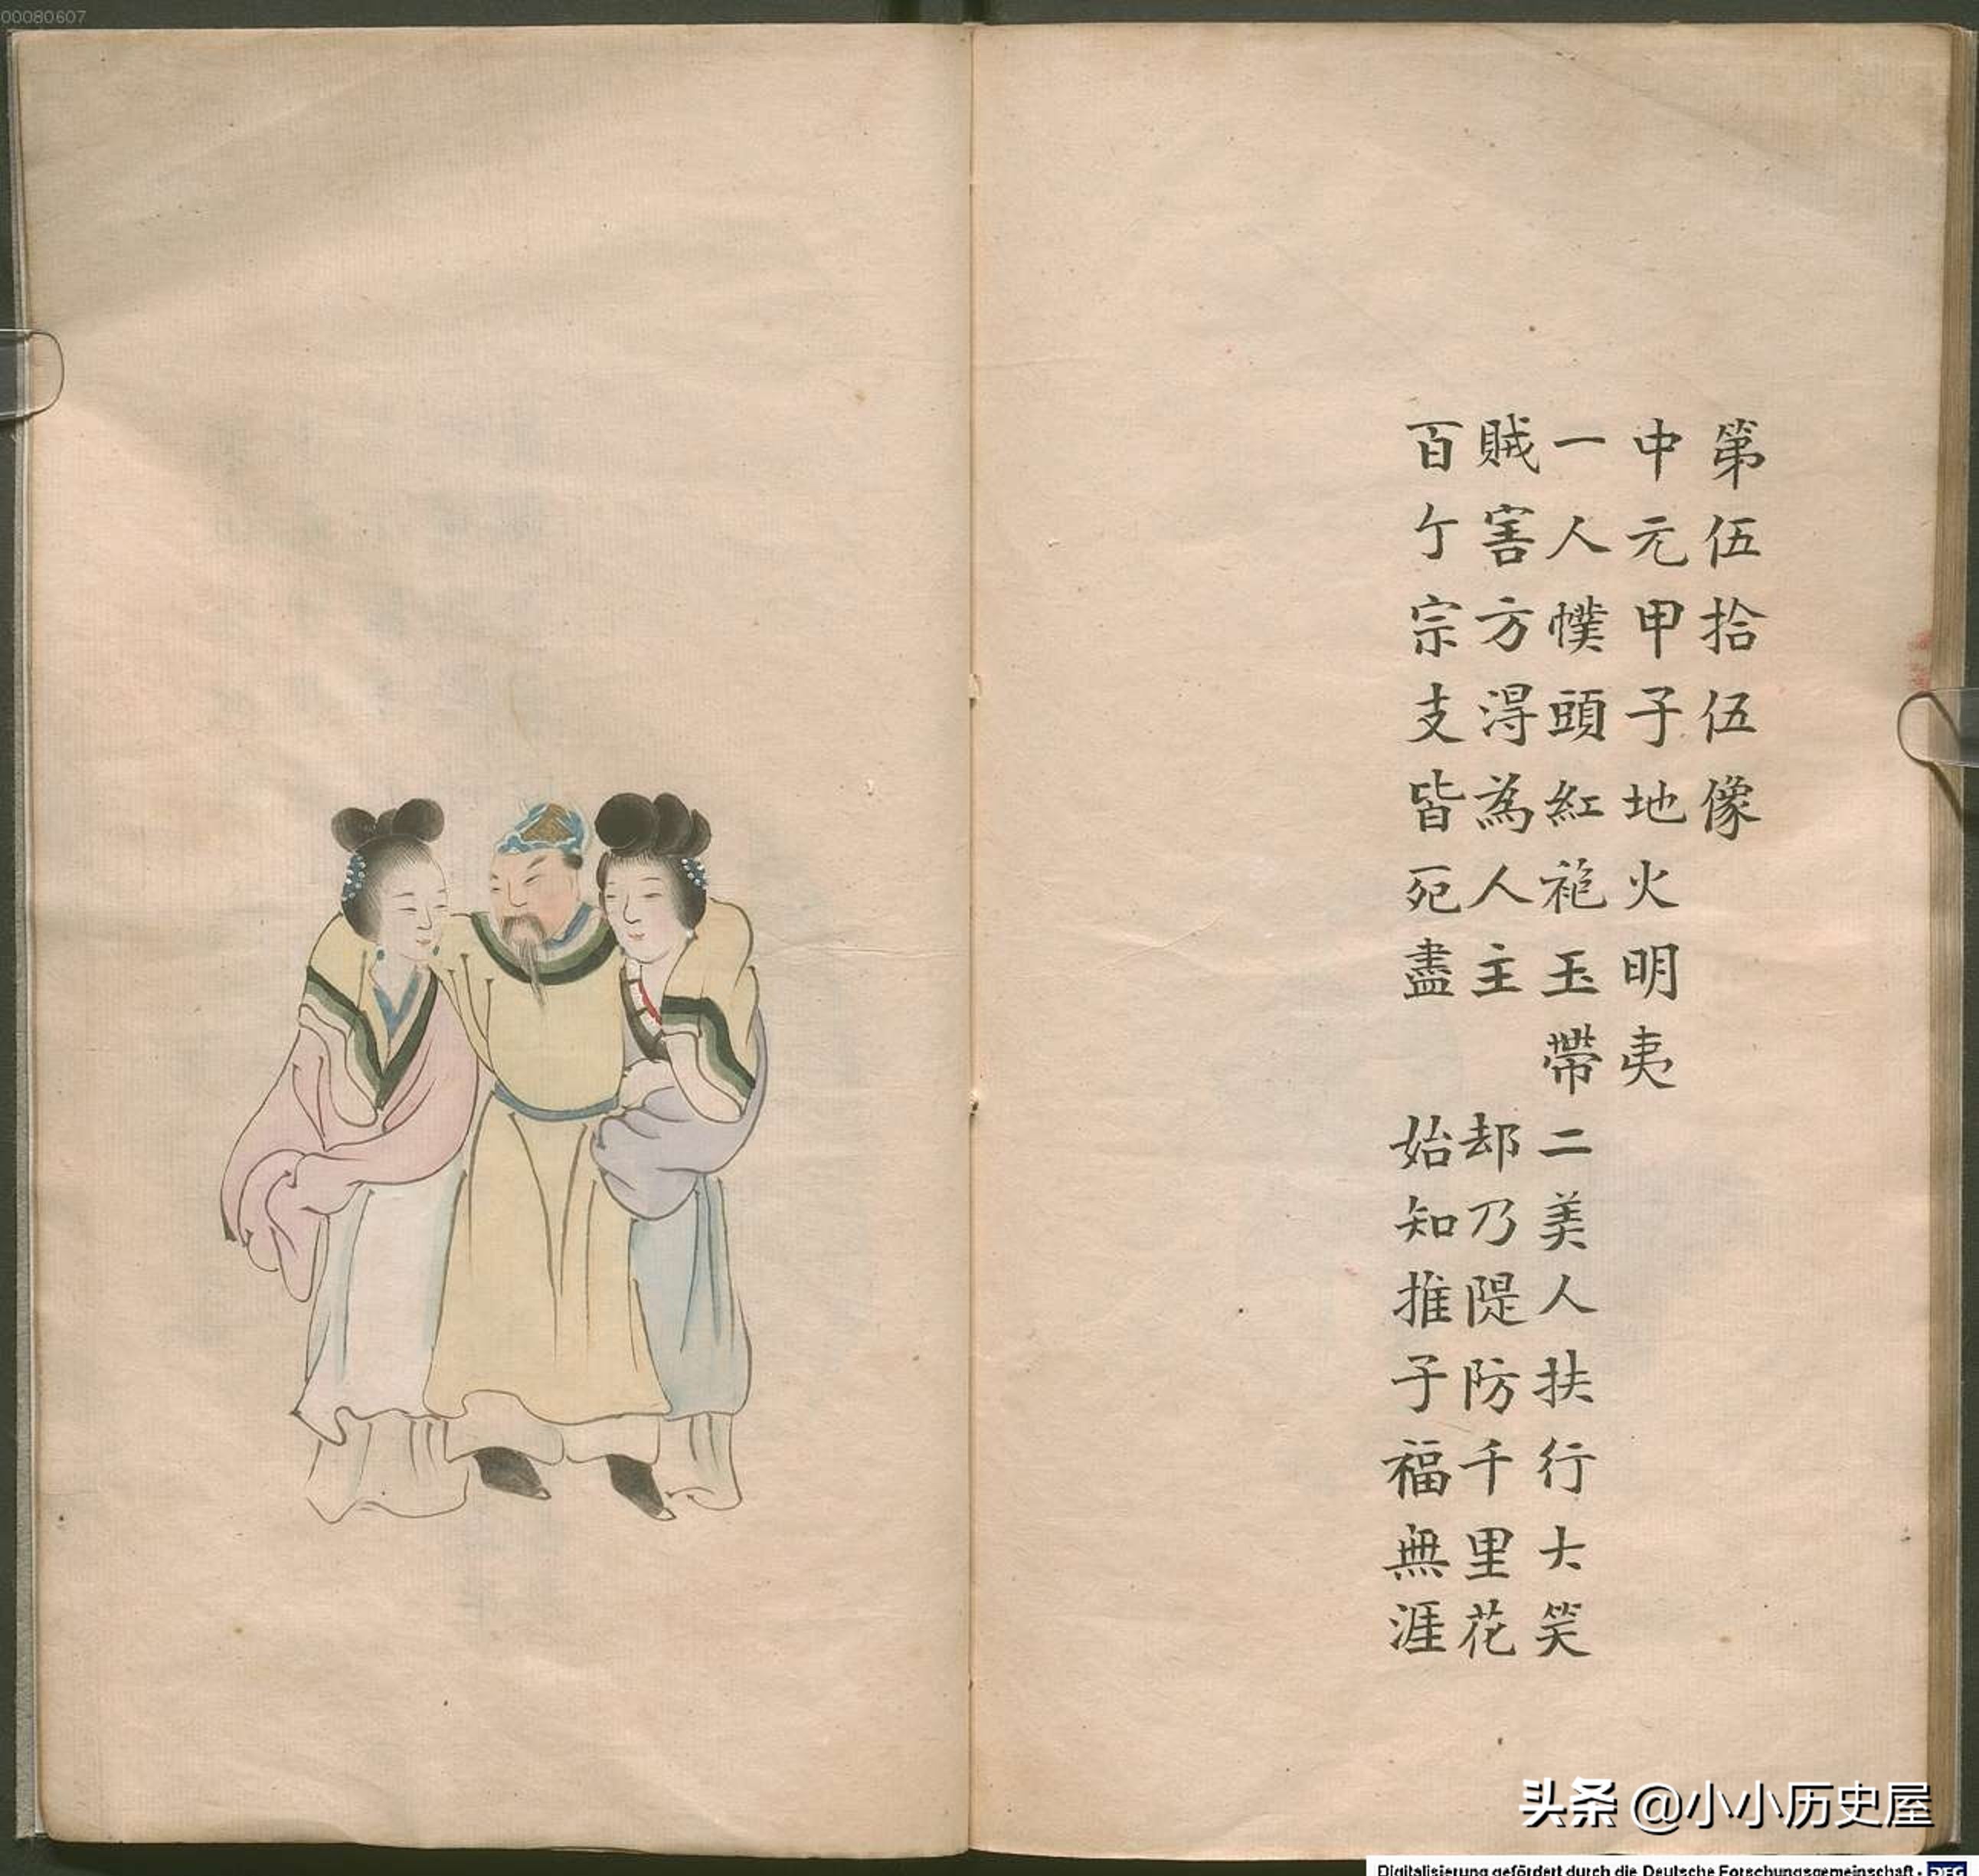 00080607
第伍拾伍像
中元甲子地火明夷
一人幞頭紅袍玉帶二美人扶行大笑
賊害方淂為人主 却乃隄防千里花
百亇宗支皆死盡 始知推子福無涯
头条 @小小历史屋
Digitalisierung gefördert durch die Deutsche Forschungsgemeinschaft - DFG